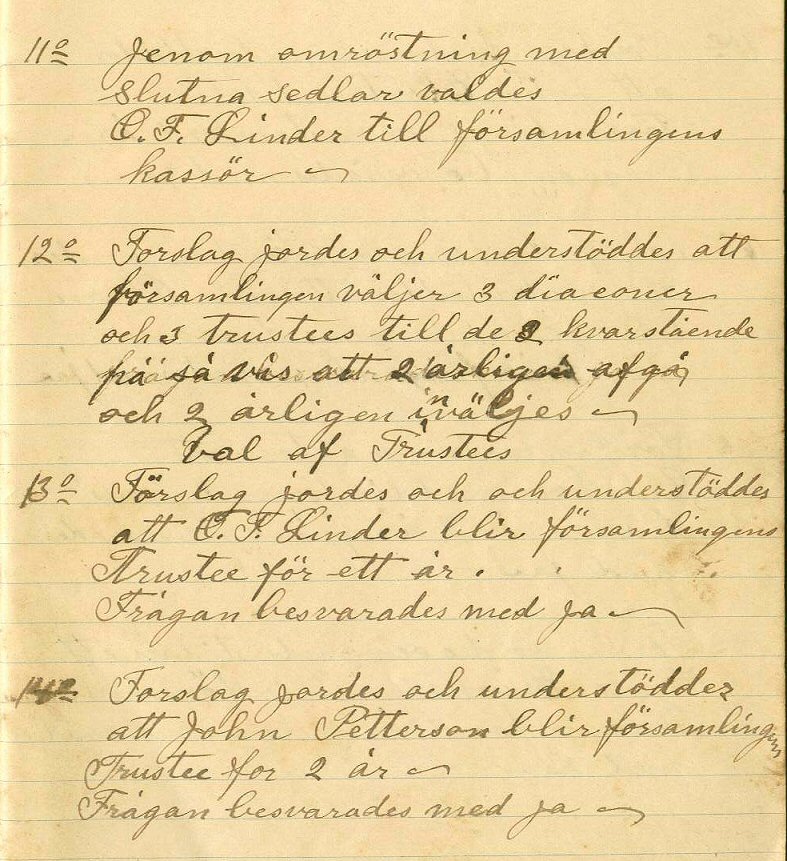 11o Jenom omröstning med
slutna sedlar valdes
O. F. Linder till församlingens
kassör
12o Forslag jordes och understöddes att
församlingen väljer 3 diaconer
och 3 trustees till de 3 kvarstående
på så vis att 2 årligen afgå
och 2 årligen inväljes
Val af Trustees
13o Förslag jordes och och understöddes
att O. F. Linder blir församlingens
Trustee för ett år.
Frågan besvarades med ja
14o Forslag jordes och understöddes
att John Petterson blir församlingens
Trustee for 2 år
Frågan besvarades med ja